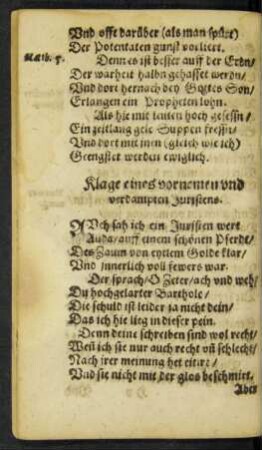 Vnd offt darüber (als man spürt)
Der Potentaten gunst vorliert.
Matth. 5.
Denn es ist besser auff der Erdn/
Der warheit halbn gehasset werdn/
Vnd dort hernach bey Gottes Son/
Erlangen ein Propheten lohn.
Als hie mit leuten hoch gesessn/
Ein zeitlang gute Suppen fressn/
Vnd dort mit jnen (gleich wie ich)
Geengstet werden ewiglich.
Klage eines vornemen vnd
verdampten Juristens.
Vch sah ich ein Juristen wert
Alda/ auff einem schönen Pferdt/
Des Zaum von eytlem Golde klar/
Vnd innerlich voll fewers war.
Der sprach/ O Zeter/ ach vnd weh/
Du hochgelarter Barthole/
Die schuld ist leider ja nicht dein/
Das ich hie lieg in dieser pein.
Denn deine schreiben sind wol recht/
Weñ ich sie nur auch recht vñ schlecht/
Nach jrer meinung het citirt/
Vnd sie nicht mit der glos beschmirt.
Aber